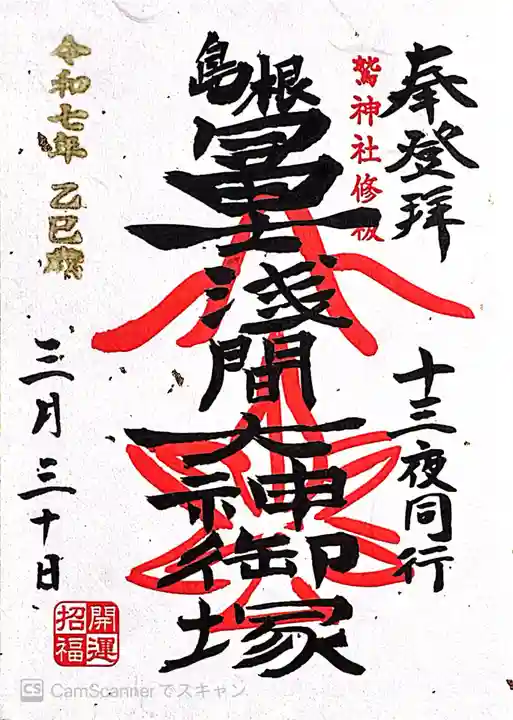 奉登拜
十三夜同行
鷲神社修祓
島根
富士浅間大神御塚
令和七年 乙巳歳
三月三十日
開運
招福
CS CamScannerでスキャン